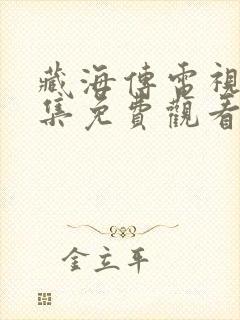 藏海傳電視
集免費觀看
金立平